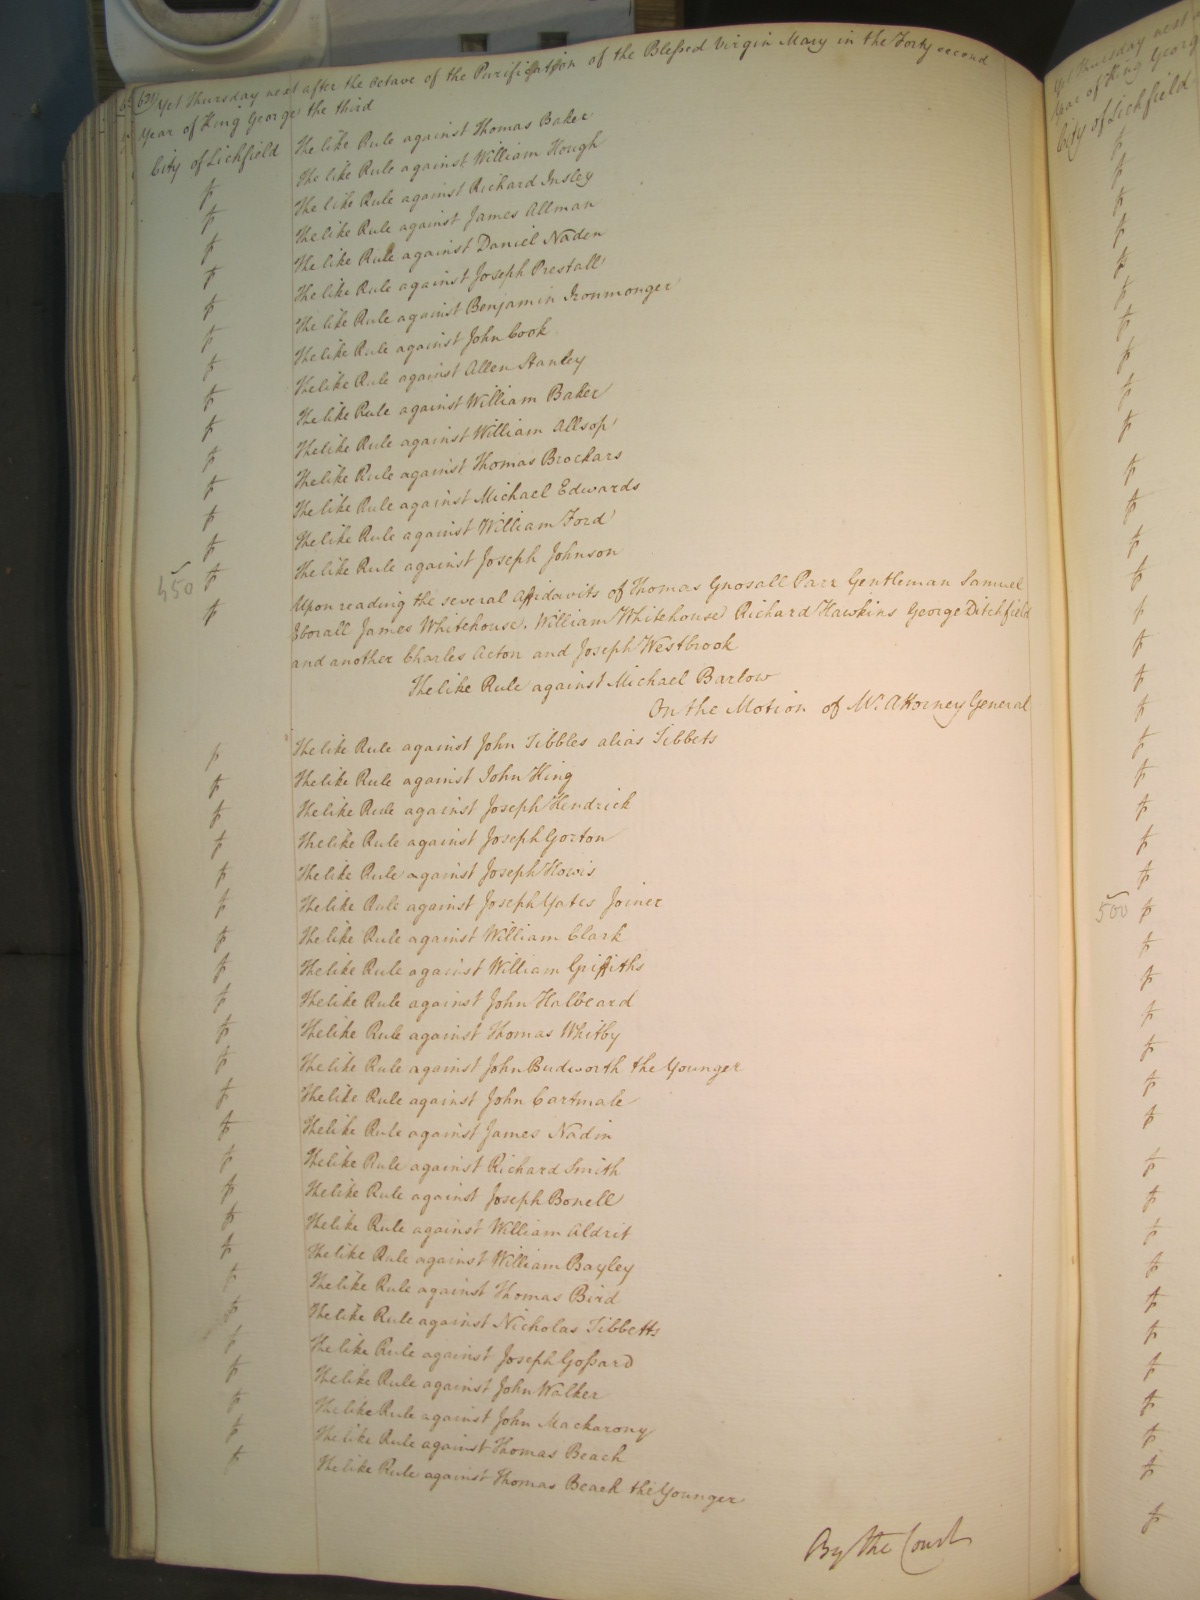 (62) Yet Thursday next after the Octave of the Purification of the Blessed Virgin Mary in the Forty second
Year of King George the third
City of Lichfield The like Rule against Thomas Baker
The like Rule against William Hough
The like Rule against Richard Insley
The like Rule against James Allman
The like Rule against Daniel Naden
The like Rule against Joseph Prestall
The like Rule against Benjamin Ironmonger
The like Rule against John Cook
The like Rule against Allen Stanley
The like Rule against William Baker
The like Rule against William Allsop
The like Rule against Thomas Brockars
The like Rule against Michael Edwards
The like Rule against William Ford
450 The like Rule against Joseph Johnson
Upon reading the several Affidavits of Thomas Gnosall Parr Gentleman Samuel
Eborall James Whitehouse William Whitehouse Richard Hawkins George Ditchfield
and another Charles Acton and Joseph Westbrook
The like Rule against Michael Barlow
On the Motion of Mr. Attorney General
The like Rule against John Tibbles alias Tibbets
The like Rule against John King
The like Rule against Joseph Hendrick
The like Rule against Joseph Gorton
The like Rule against Joseph Howis
The like Rule against Joseph Yates Joiner
The like Rule against William Clark
The like Rule against William Griffiths
The like Rule against John Halbeard
The like Rule against Thomas Whitby
The like Rule against John Budworth the Younger
The like Rule against John Cartmale
The like Rule against James Nadin
The like Rule against Richard Smith
The like Rule against Joseph Bonell
The like Rule against William Aldrit
The like Rule against William Bayley
The like Rule against Thomas Bird
The like Rule against Nicholas Tibbetts
The like Rule against Joseph Goſsard
The like Rule against John Walker
The like Rule against John Mackarony
The like Rule against Thomas Beach
The like Rule against Thomas Beach the Younger
By the Court
Yet Thursday next
Year of King George
City of Lichfield
500